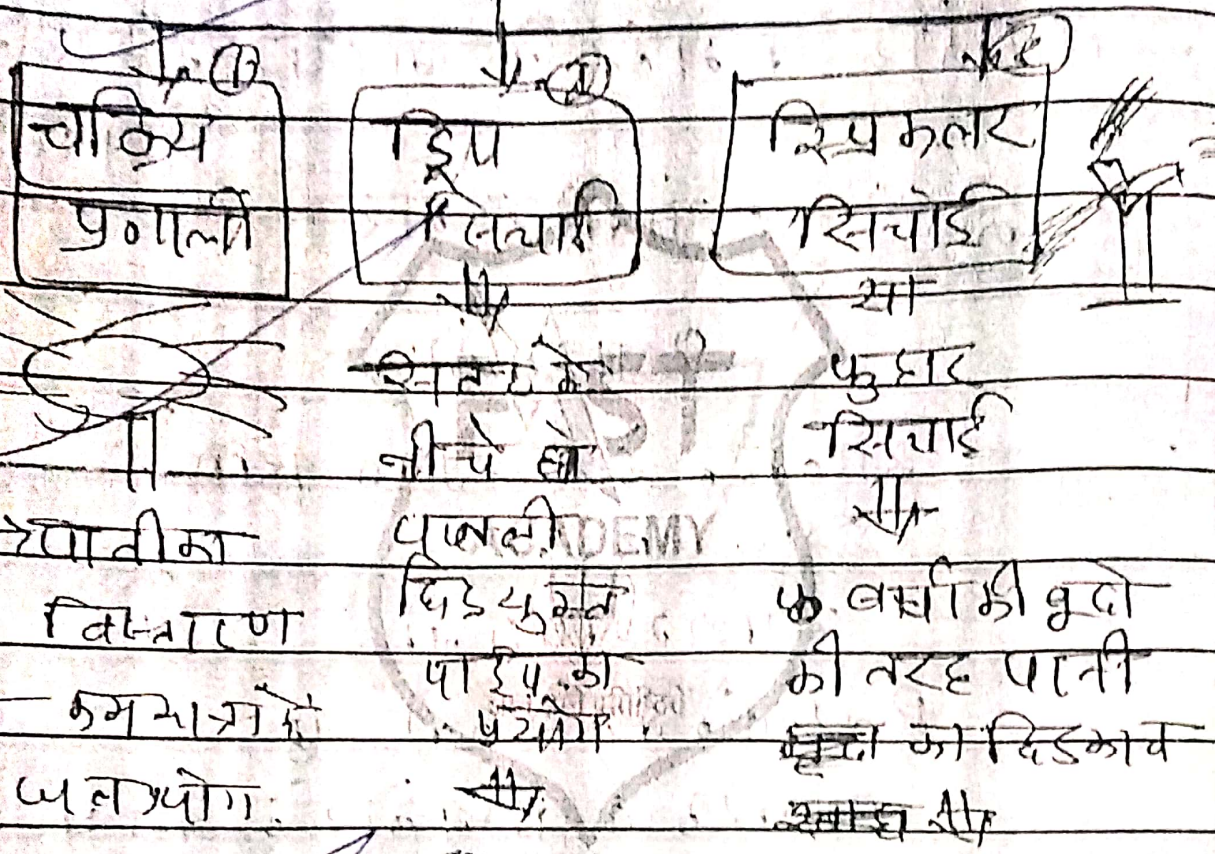 ①
चक्रिय
प्रणाली
पानी का
वितरण
कम मात्रा में
②
ड्रिप
सिंचाई
सतह के
नीचे हो
पतली
छिद्र युक्त
पाईप का
प्रयोग
③
स्प्रिंकलर
सिचाई
या
फुहार
सिचाई
वर्षा की बूदो
की तरह पानी
का छिडकाव
ACADEMY